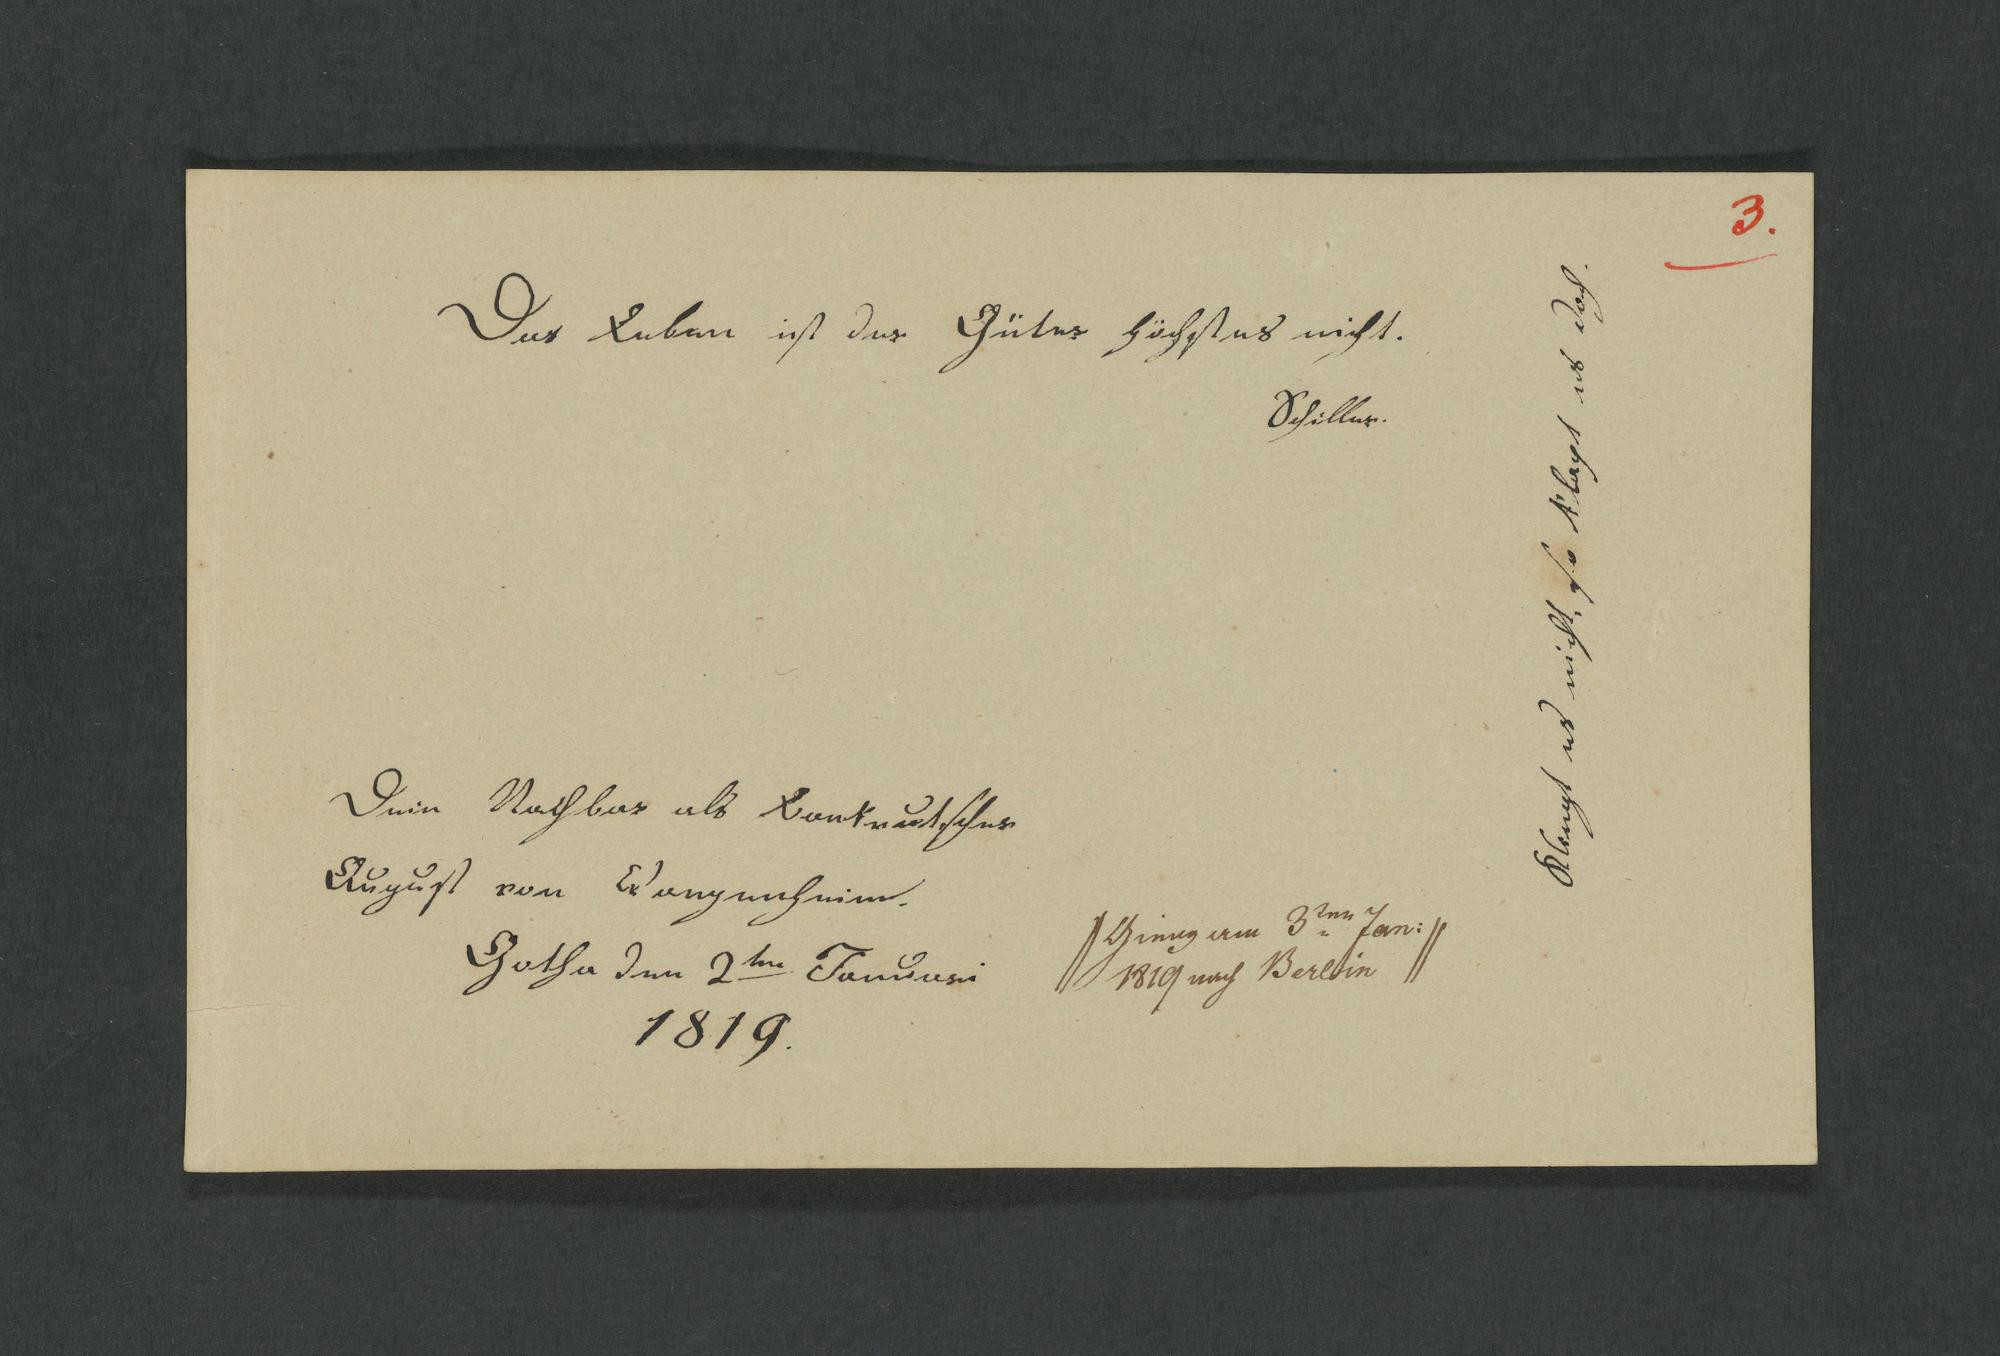 3.
Das Leben ist der Güter höchstes nicht.
Schiller.
Klangt es nicht, so klagt es doch.
Dein Nachbar als
August von Wangenheim.
Gotha den 2ten Januari
1819.
Gieng am 3ten Jan:
1819 nach Berlin